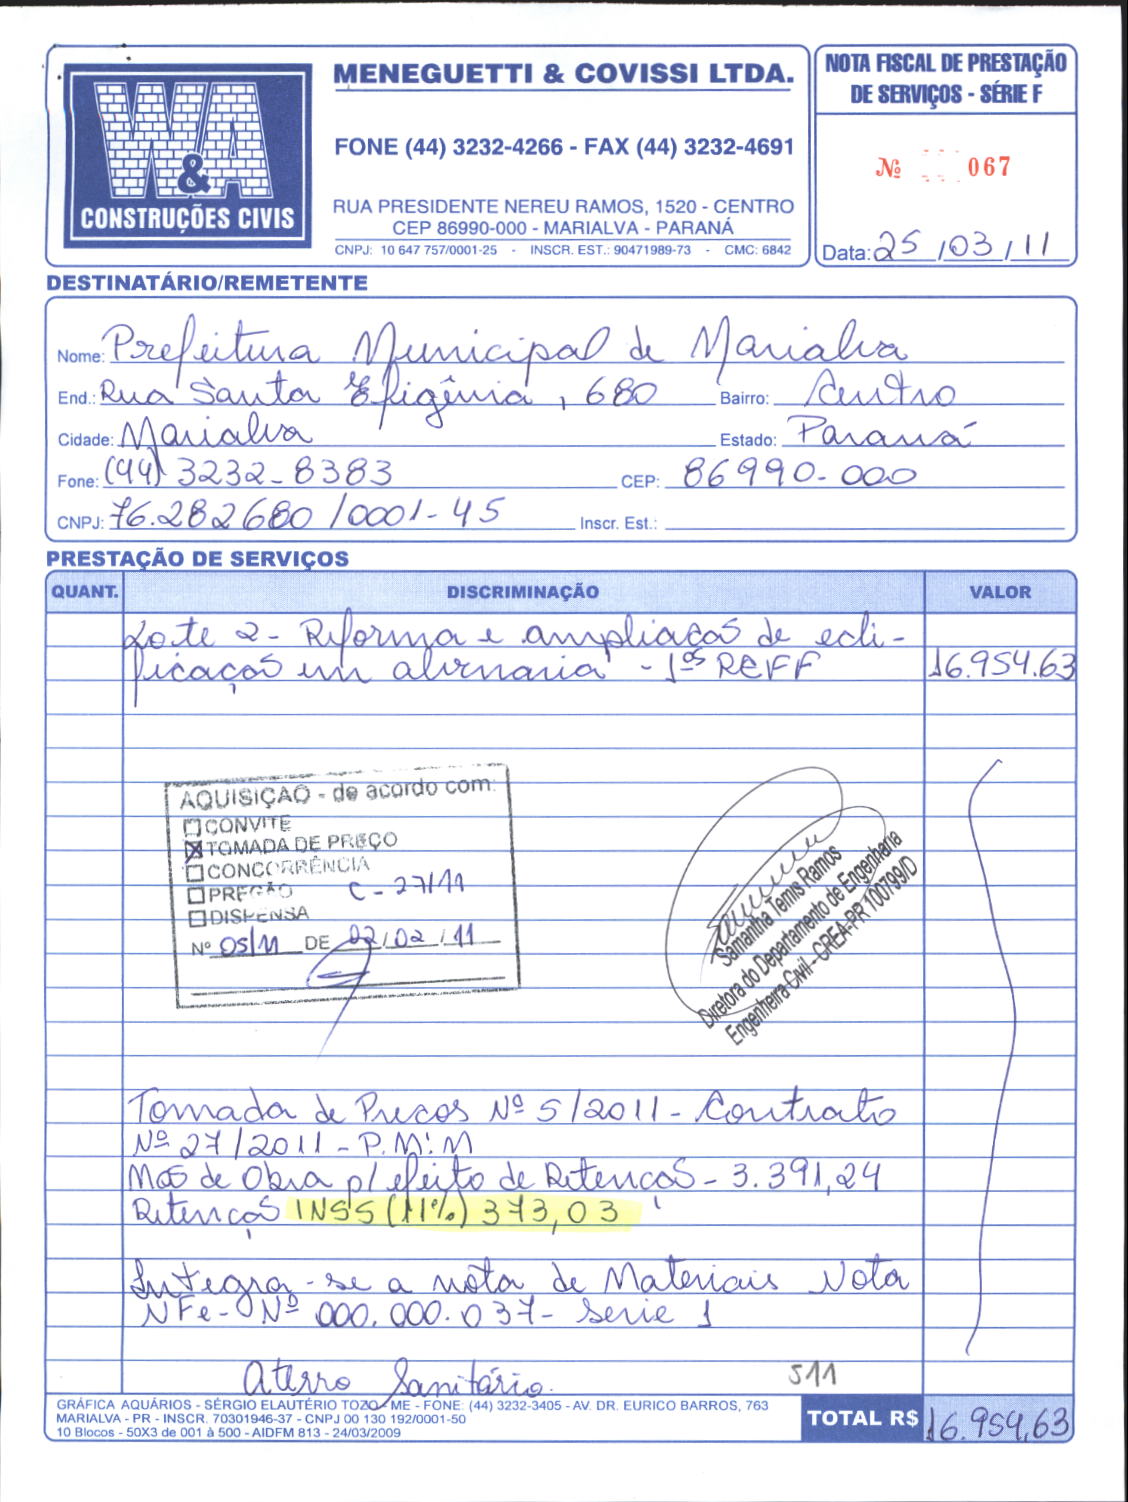 W&A
CONSTRUÇÕES CIVIS
MENEGUETTI & COVISSI LTDA.
FONE (44) 3232-4266 - FAX (44) 3232-4691
RUA PRESIDENTE NEREU RAMOS, 1520 - CENTRO
CEP 86990-000 - MARIALVA - PARANÁ
CNPJ: 10 647 757/0001-25 - INSCR. EST.: 90471989-73 - CMC: 6842
NOTA FISCAL DE PRESTAÇÃO
DE SERVIÇOS - SÉRIE F
Nº 067
Data: 25/03/11
DESTINATÁRIO/REMETENTE
Nome: Prefeitura Municipal de Marialva
End.: Rua Santa Efigênia, 680 Bairro: Centro
Cidade: Marialva Estado: Paraná
Fone: (44) 3232-8383 CEP: 86990-000
CNPJ: 76.282680/0001-45 Inscr. Est.:
PRESTAÇÃO DE SERVIÇOS
QUANT. DISCRIMINAÇÃO VALOR
Lote 2 - Reforma e ampliação de edi-
ficação em alvenaria - 1º REFF 16.954,63
AQUISIÇÃO - de acordo com:
CONVITE
TOMADA DE PREÇO
CONCORRÊNCIA
PREGÃO C - 27/11
DISPENSA
Nº 05/11 DE 02/02/11
Samantha Temis Ramos
Diretora do Departamento de Engenharia
Engenheira Civil - CREA-PR 100799/D
Tomada de Preços Nº 5/2011 - Contrato
Nº 27/2011 - P.M.M
Mão de Obra p/ efeito de Retenção - 3.391,24
Retenção INSS (11%) 373,03
Integra-se a nota de Materiais Nota
NFe - Nº 000.000.037 - Serie 1
Aterro Sanitário. 511
GRÁFICA AQUÁRIOS - SÉRGIO ELAUTÉRIO TOZO - ME - FONE: (44) 3232-3405 - AV. DR. EURICO BARROS, 763
MARIALVA - PR - INSCR. 70301946-37 - CNPJ 00 130 192/0001-50
10 Blocos - 50X3 de 001 à 500 - AIDFM 813 - 24/03/2009
TOTAL R$ 16.954,63